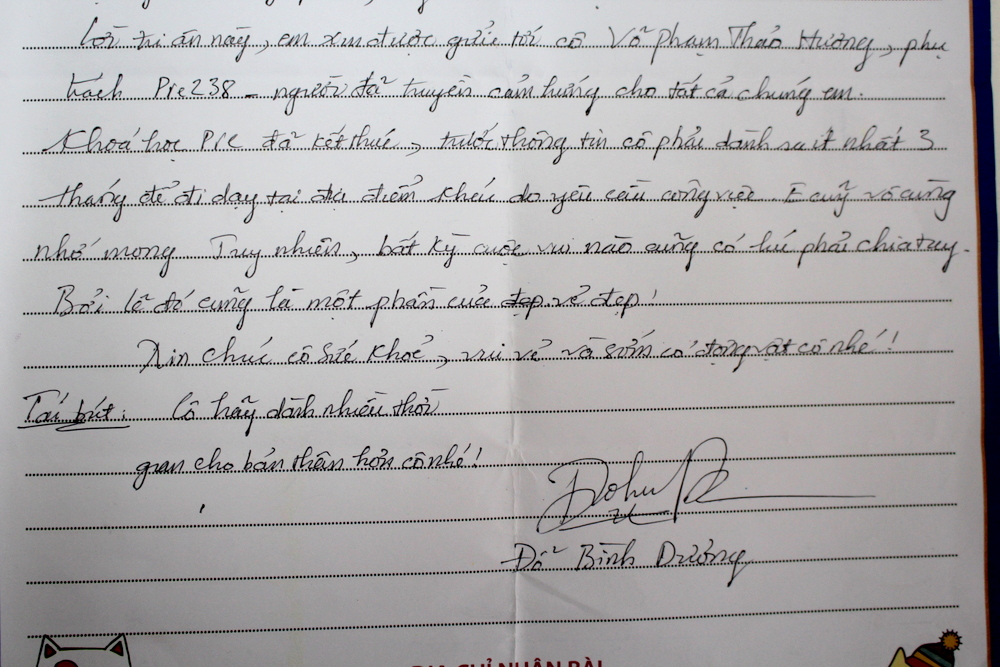 Lời tri ân này, em xin được gửi tới cô Võ Phạm Thảo Hương, phụ
trách Pre238 - người đã truyền cảm hứng cho tất cả chúng em.
Khoá học Pre đã kết thúc, trước thông tin cô phải dành ra ít nhất 3
tháng để đi dạy tại địa điểm khác do yêu cầu công việc. E cũng vô cùng
nhớ mong. Tuy nhiên, bất kỳ cuộc vui nào cũng có lúc phải chia tay.
Bởi lẽ đó cũng là một phần của đẹp vẻ đẹp!
Xin chúc cô sức khoẻ, vui vẻ và sớm có động vật cô nhé!
Tái bút: Cô hãy dành nhiều thời
gian cho bản thân hơn cô nhé!
Đỗ Bình Dương
ĐỊA CHỈ NHẬN BÀI